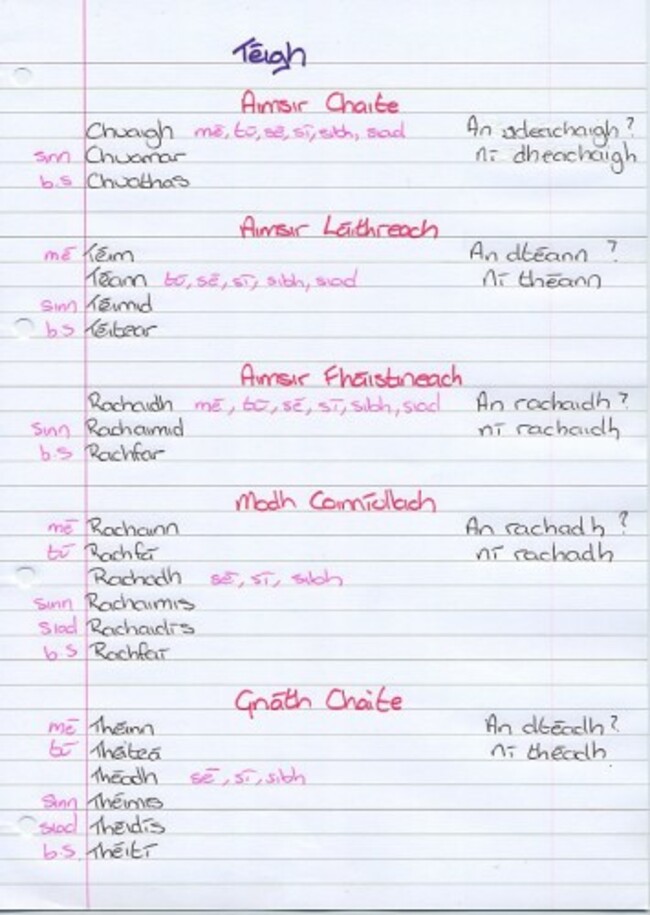 Téigh
Aimsir Chaite
Chuaigh mé, tú, sé, sí, sibh, siad An ndeachaigh?
sinn Chuamar ní dheachaigh
b.s Chuathas
Aimsir Láithreach
mé Téim An dtéann ?
Téann tú, sé, sí, sibh, siad ní théann
sinn Téimid
b.s Téitear
Aimsir Fháistineach
Rachaidh mé, tú, sé, sí, sibh, siad An rachaidh?
sinn Rachaimid ní rachaidh
b.s Rachfar
Modh Coinníollach
mé Rachainn An rachadh?
tú Rachfá ní rachadh
Rachadh sé, sí, sibh
sinn Rachaimis
siad Rachaidís
b.s Rachfaí
Gnáth Chaite
mé Théinn An dtéadh?
tú Théiteá ní théadh
Théadh sé, sí, sibh
sinn Théimis
siad Théidís
b.s. Théití